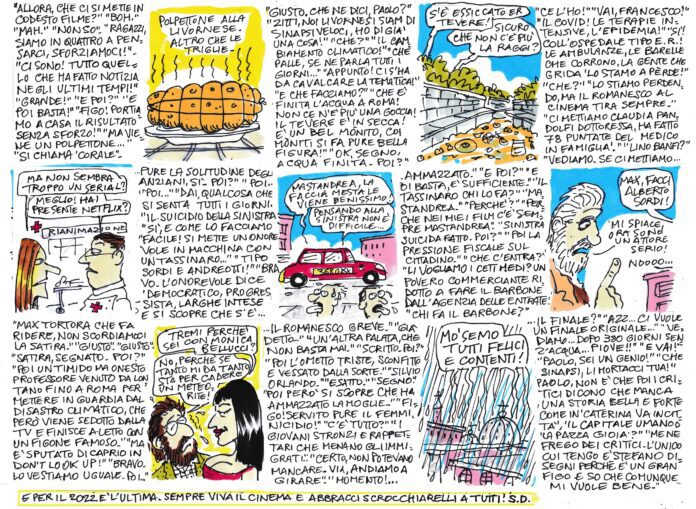 "ALLORA, CHE CI SI METTE IN
CODESTO FILME?" "BOH."
"MAH." "NONSO." "RAGAZZI,
SIAMO IN QUATTRO A PEN-
SARCI, SFORZIAMOCI!"
"CI SONO! TUTTO QUEL-
LO CHE HA FATTO NOTIZIA
NEGLI ULTIMI TEMPI!"
"GRANDE!" "E POI?" "E
POI BASTA!" "FIGO! PORTIA-
MO A CASA IL RISULTATO
SENZA SFORZO!" "MA VIE-
NE UN POLPETTONE..."
"SI CHIAMA 'CORALE'."
POLPETTONE ALLA
LIVORNESE.
ALTRO CHE LE
TRIGLIE.
"GIUSTO. CHE NE DICI, PAOLO?"
"ZITTI, NOI LIVORNESI SIAM DI
SINAPSI VELOCI, HO DI GIÀ
UNA COSA!" "CHE?" "IL CAM-
BIAMENTO CLIMATICO!" "CHE
PALLE, SE NE PARLA TUTTI I
GIORNI..." "APPUNTO! CI S'HA
DA CAVALCARE LA TEMATICA!"
"E CHE FACCIAMO?" "CHE È
FINITA L'ACQUA A ROMA!
NON CE N'È PIÙ UNA GOCCIA!
IL TEVERE È IN SECCA!
È UN BEL MONITO, COI
MONITI SI FA PURE BELLA
FIGURA!" "OK, SEGNO,
ACQUA FINITA. POI?"
S'È ESSICCATO ER
TEVERE!
SICURO
CHE NON C'È PIÙ
LA RAGGI?
"CE L'HO!" "VAI, FRANCESCO!"
"IL COVID! LE TERAPIE IN-
TENSIVE, L'EPIDEMIA!" "SÌ!
COLL'OSPEDALE TIPO E.R.!
LE AMBULANZE, LE BARELLE
CHE CORRONO, LA GENTE CHE
GRIDA 'LO STAMO A PÈRDE!'"
"CHE?" "'LO STIAMO PERDEN-
DO,' MA IL ROMANESCO AL
CINEMA TIRA SEMPRE."
"CI METTIAMO CLAUDIA PAN-
DOLFI DOTTORESSA, HA FATTO
78 PUNTATE DEL 'MEDICO
IN FAMIGLIA'." "LINO BANFI?"
"VEDIAMO. SE CI METTIAMO...
MA NON SEMBRA
TROPPO UN SERIAL?
MEGLIO! HAI
PRESENTE NETFLIX?
RIANIMAZIONE
PURE LA SOLITUDINE DEGLI
ANZIANI, SÌ. POI?" "POI..
"POI..." "DAI, QUALCOSA CHE
SI SENTA TUTTI I GIORNI."
"IL SUICIDIO DELLA SINISTRA"
"SÌ, E COME LO FACCIAMO?"
"FACILE! SI METTE UN ONORE-
VOLE IN MACCHINA CON
UN TASSINARO..." "TIPO
SORDI E ANDREOTTI!" "BRA-
VO. L'ONOREVOLE DICE
'DEMOCRATICO, PROGRES-
SISTA, LARGHE INTESE'
E SI SCOPRE CHE S'È...
MASTANDREA, LA
FACCIA MESTA LE
VIENE BENISSIMO!
PENSANDO ALLA
SINISTRA NON È
DIFFICILE...
AMMAZZATO." "E POI?" "E
DI BASTA, È SUFFICIENTE." "IL
TASSINARO CHI LO FA?" "MA-
STANDREA." "PERCHÈ?" "PER-
CHÈ NEI MIEI FILM C'È SEM-
PRE MASTANDREA." "SINISTRA
SUICIDA FATTO. POI?" "POI LA
PRESSIONE FISCALE SUL
CITTADINO." "CHE C'ENTRA?"
"LI VOGLIAMO I CETI MEDI? UN
POVERO COMMERCIANTE RI-
DOTTO A FARE IL BARBONE
DALL'AGENZIA DELLE ENTRATE."
"CHI FA IL BARBONE?"
MAX, FACCI
ALBERTO
SORDI!
MI SPIACE,
ORA SONO
UN ATTORE
SERIO!
NOOOO...
"MAX TORTORA CHE FA
RIDERE, NON SCORDIAMOCI
LA SATIRA." "GIUSTO." "GIUSTO."
"SATIRA, SEGNATO. POI?"
"POI UN TIMIDO MA ONESTO
PROFESSORE VENUTO DA LON-
TANO FINO A ROMA PER
METTERE IN GUARDIA DAL
DISASTRO CLIMATICO, CHE
PERÒ VIENE SEDOTTO DALLA
TV E FINISCE A LETTO CON
UN FIGONE FAMOSO." "MA
È SPUTATO DI CAPRIO IN
DON'T LOOK UP!" "BRAVO.
LO VESTIAMO UGUALE. POI..
TREMI PERCHÈ
SEI CON MONICA
BELLUCCI?
NO, PERCHÈ SE
TANTO MI DA TANTO
STA PER CADERE
UN METEO-
RITE!
IL ROMANESCO GREVE." "GIÀ
DETTO." "UN'ALTRA PALATA, CHE
NON BASTA MAI." "SCRITTO. POI?"
"POI L'OMETTO TRISTE, SCONFITTO
E VESSATO DALLA SORTE." "SILVIO
ORLANDO." "ESATTO." "SEGNO."
"POI PERO' SI SCOPRE CHE HA
AMMAZZATO LA MOGLIE." "FI-
GO! SERVITO PURE IL FEMMI-
NICIDIO!" "C'È TUTTO?" "I
GIOVANI STRONZI E RAPPET-
TARI CHE MENANO GLI IMMI-
GRATI." "CERTO, NON POTEVANO
MANCARE. VIA, ANDIAMO A
GIRARE." "MOMENTO!...
MO' SEMO
TUTTI FELICI
E CONTENTI!
IL FINALE?" "AZZ... CI VUOLE
UN FINALE ORIGINALE..." "VE-
DIAMO... DOPO 330 GIORNI SENZ
'ACQUA... PIOVE!" "E VAI!"
"PAOLO, SEI UN GENIO!" "CHE
SINAPSI, LI MORTACCI TUA!"
"PAOLO, NON È CHE POI I CRI-
TICI DICONO CHE MANCA
UNA STORIA BELLA E FORTE
COME IN 'CATERINA VA IN CIT-
TÀ', 'IL CAPITALE UMANO' O
'LA PAZZA GIOIA'?" "ME NE
FREGO DEI CRITICI. L'UNICO
CUI TENGO È STEFANO DI-
SEGNI PERCHÈ È UN GRAN
FIGO E SO CHE COMUNQUE
MI VUOLE BENE."
E PER IL 2022 E' L'ULTIMA. SEMPRE VIVA IL CINEMA E ABBRACCI SCROCCHIARELLI A TUTTI! S.D.